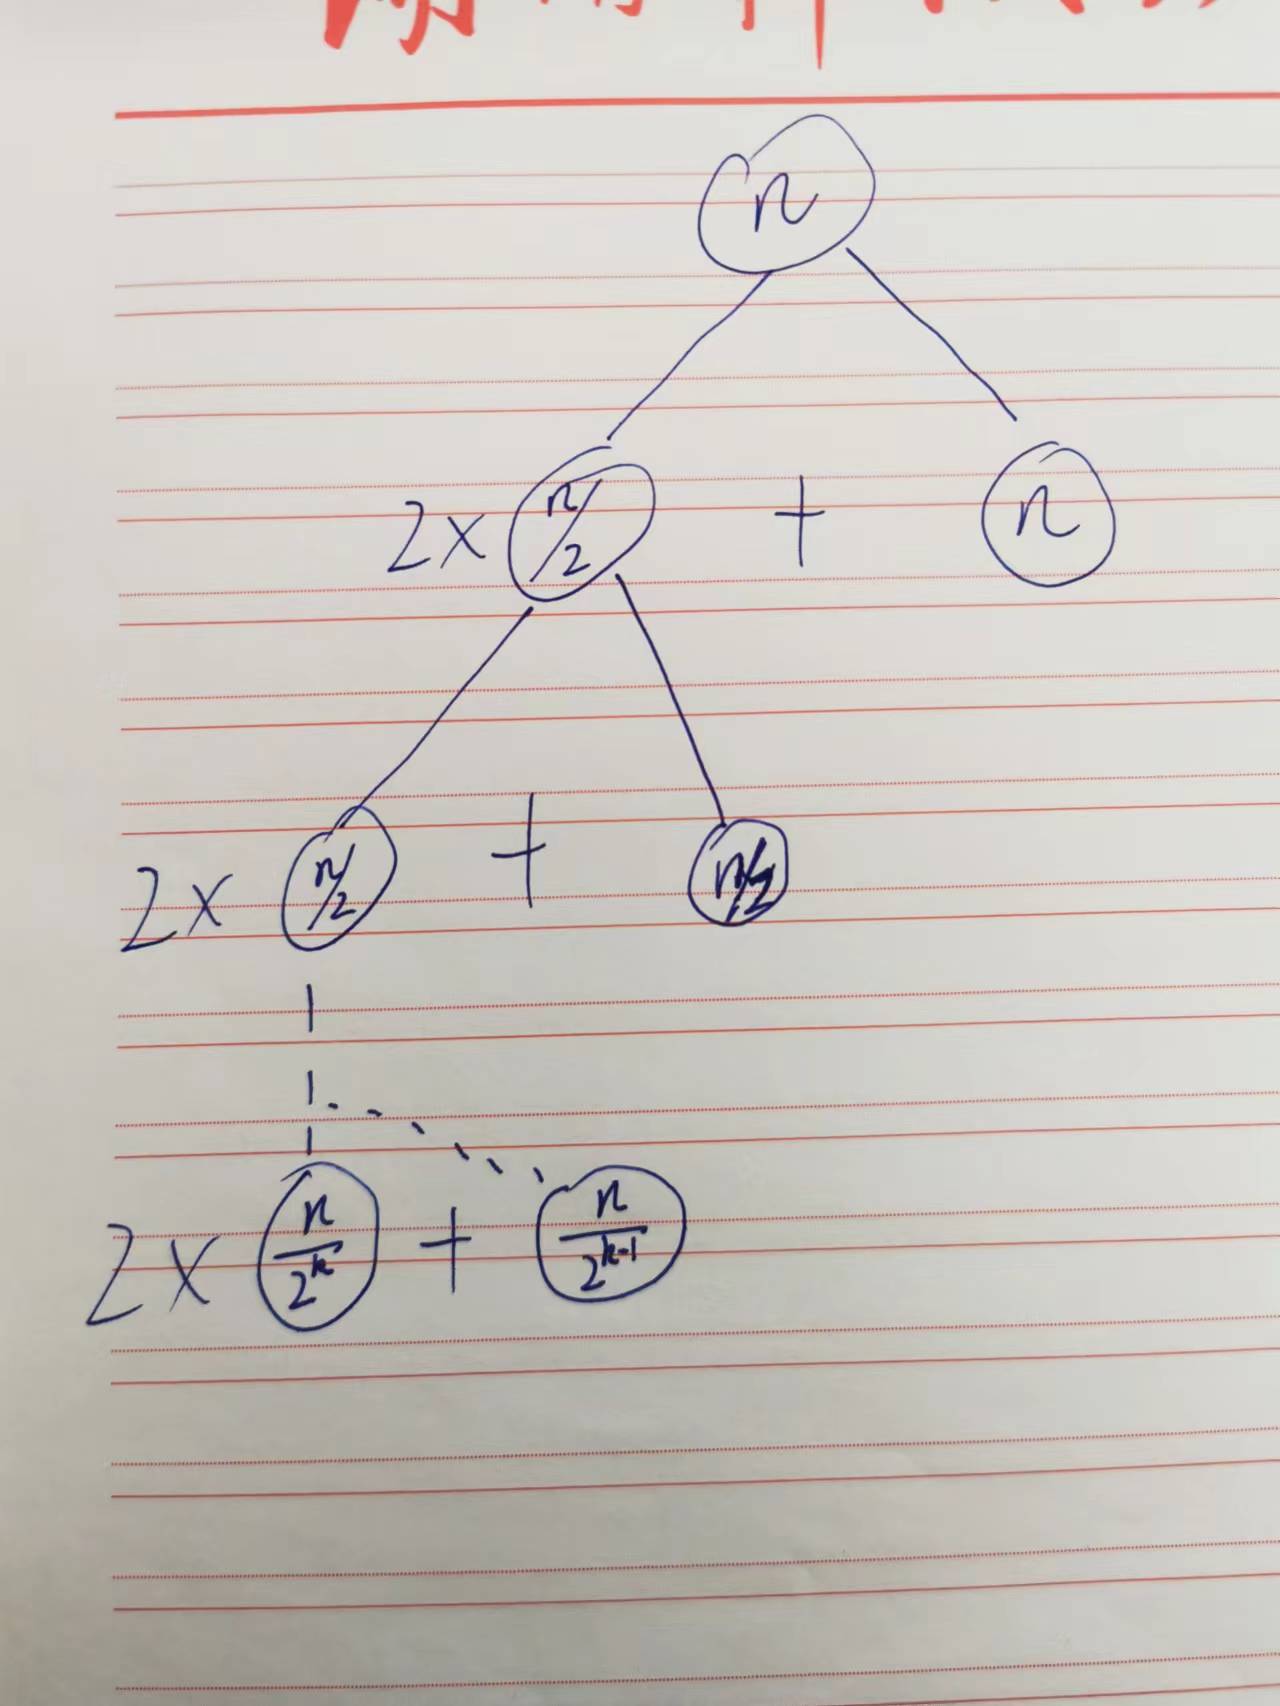 n
2 × n/2 + n
2 × n/2 + n/2
2 × n/2^k + n/2^{k-1}